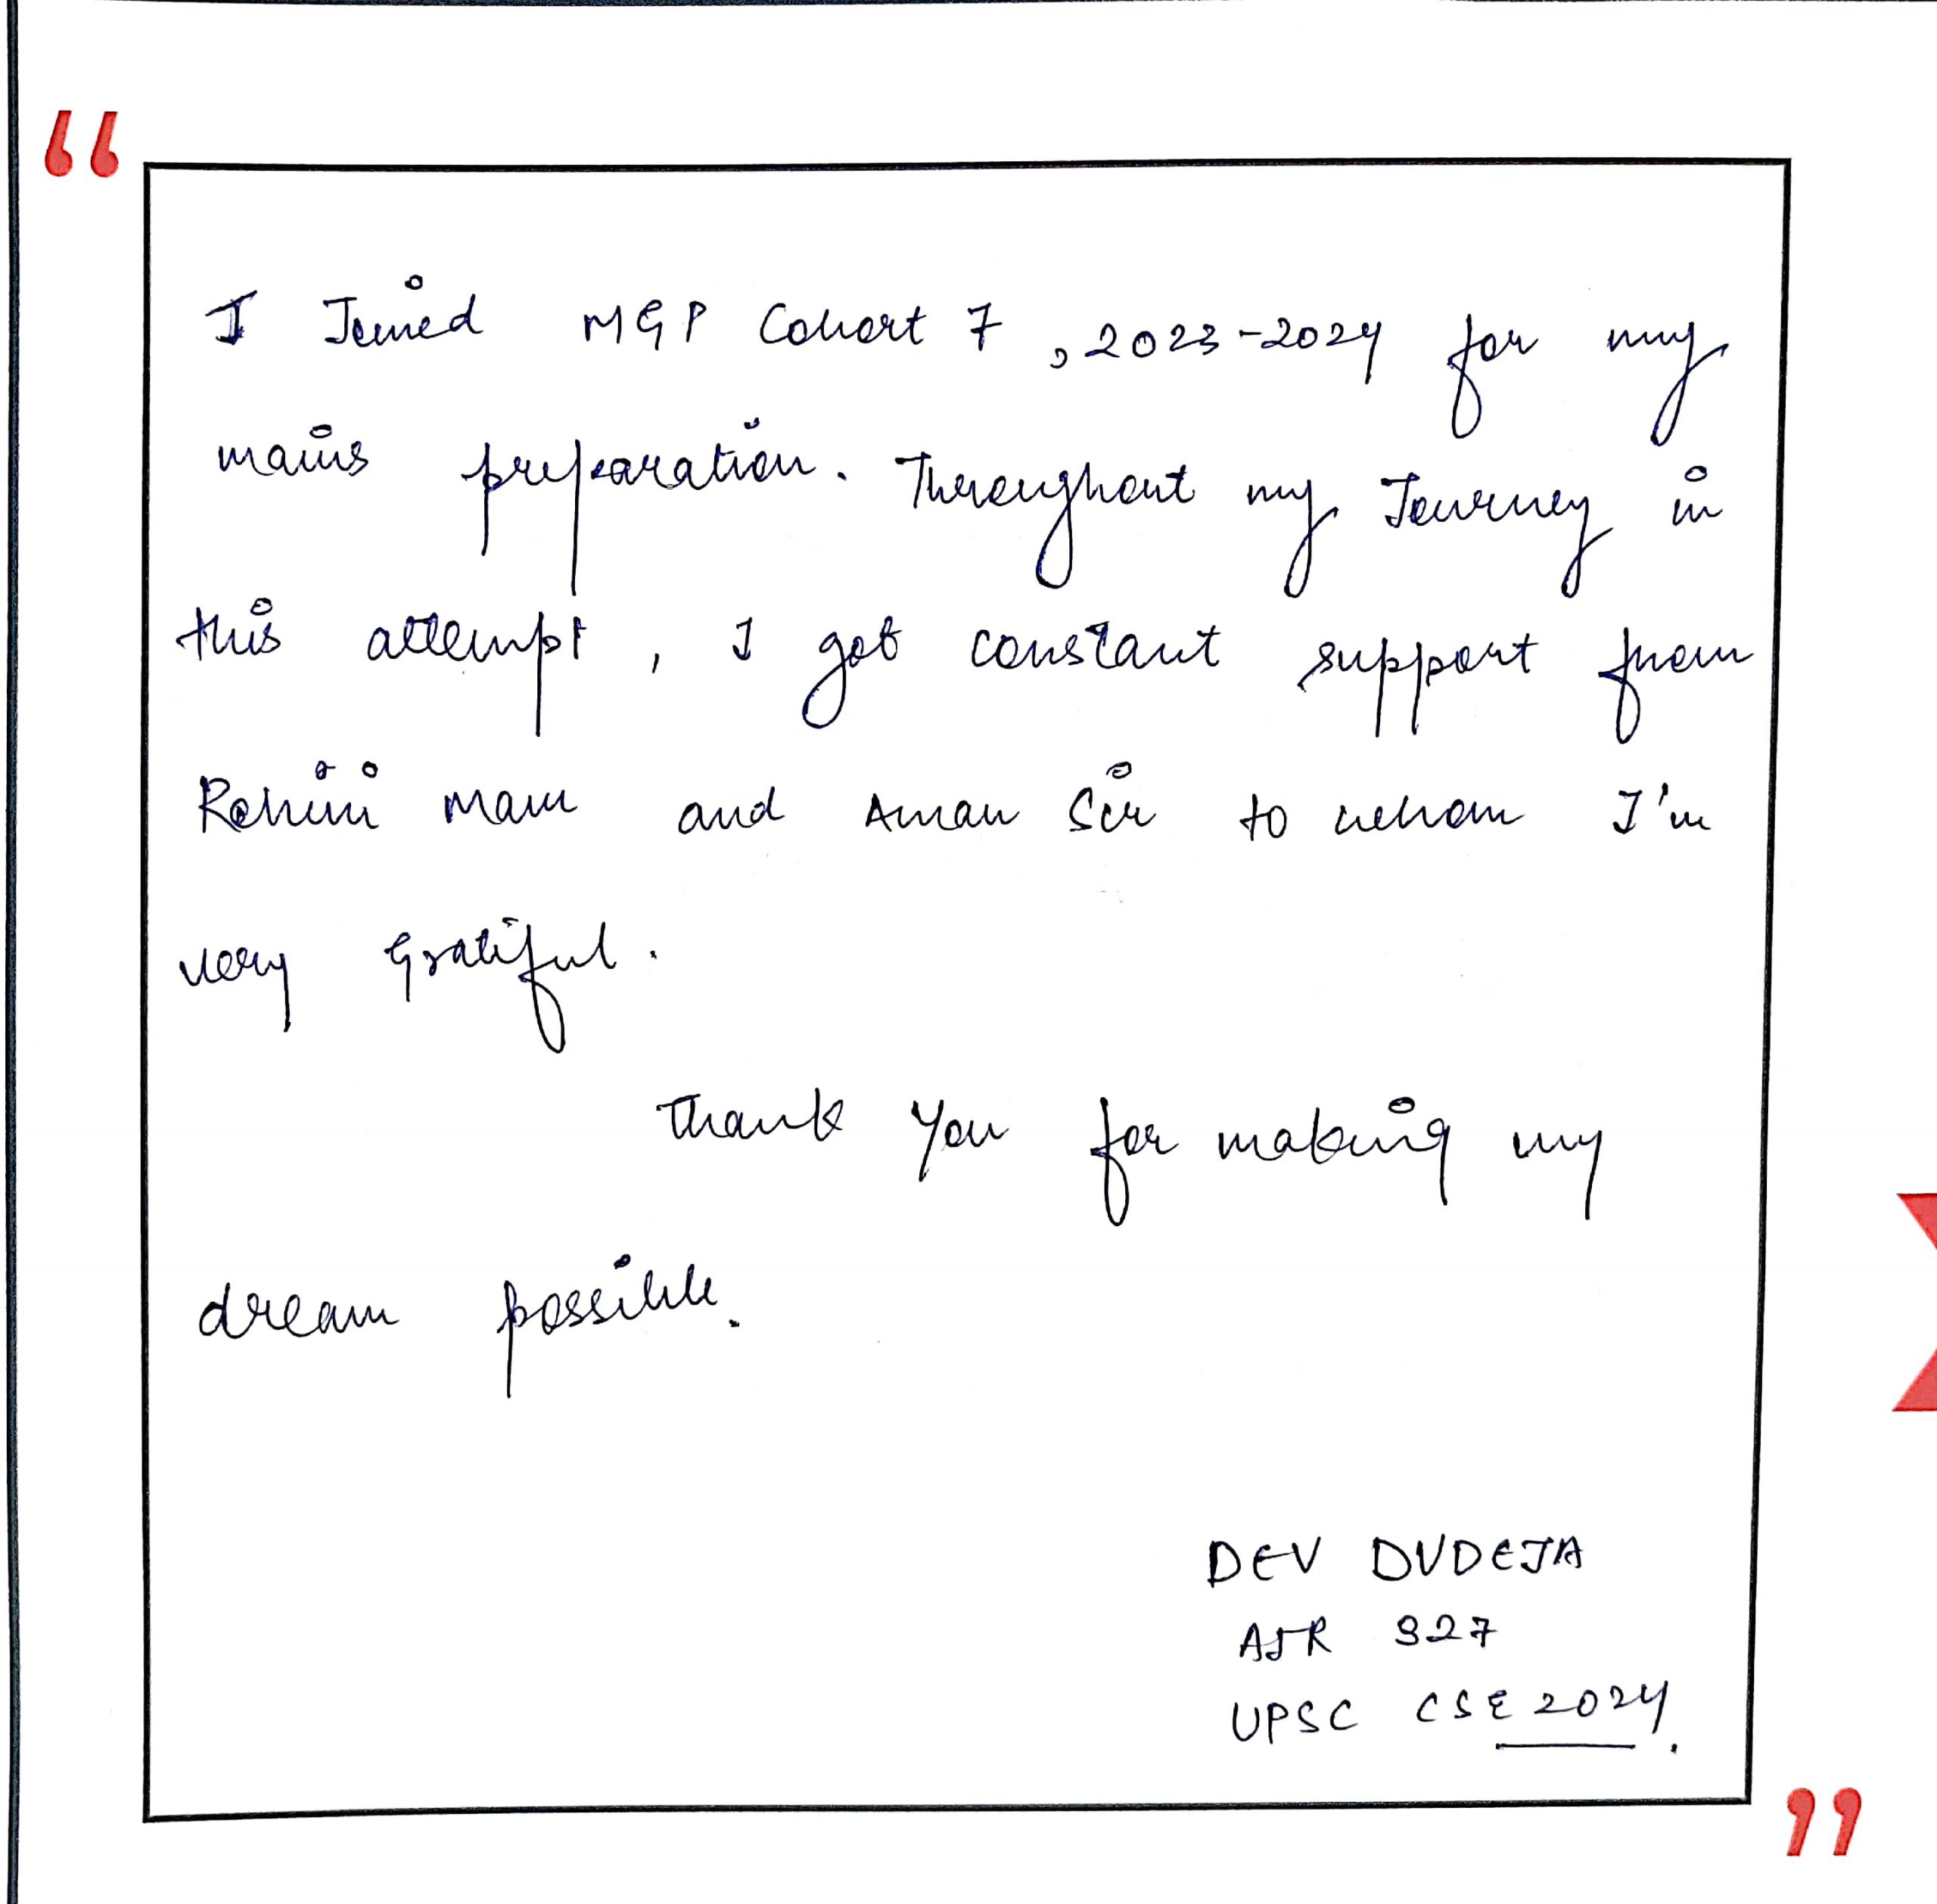 “
I Joined MGP Cohort 7, 2023-2024 for my
mains preparation. Throughout my Journey in
this attempt, I got constant support from
Rohini Mam and Aman Sir to whom I'm
very Gratiful.
Thank You for making my
dream possible.
DEV DUDEJA
AIR 327
UPSC CSE 2024.
”